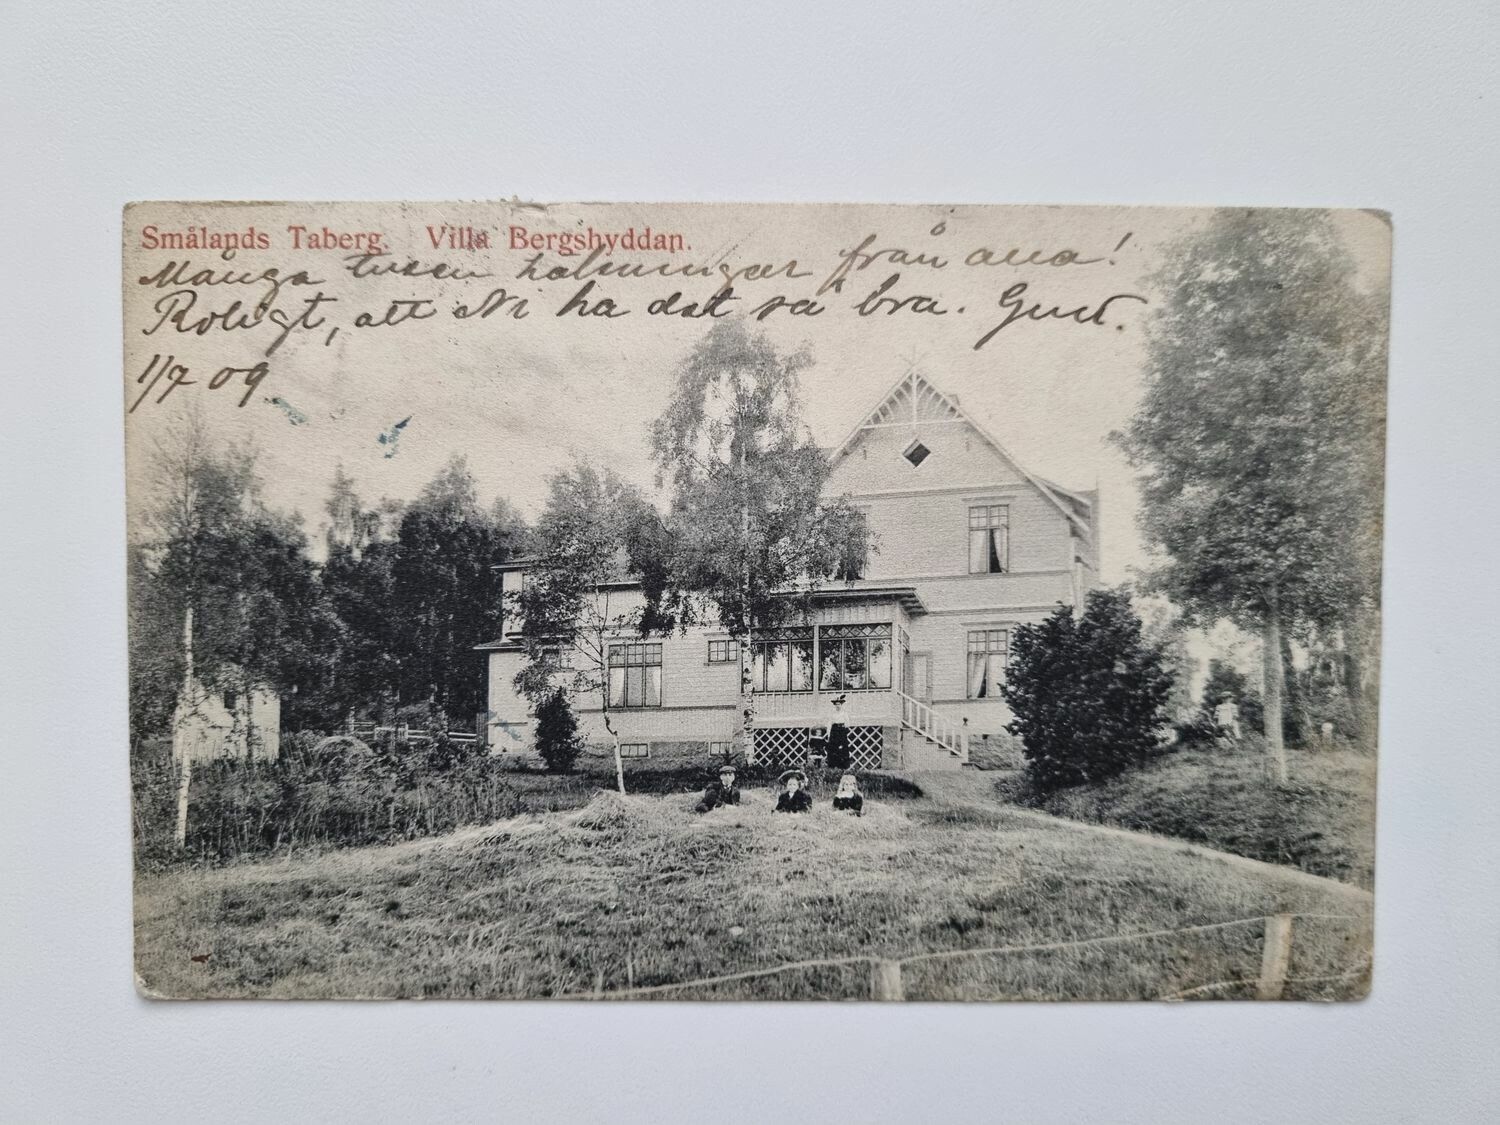 Smålands Taberg. Villa Bergshyddan.
Många tusen hälsningar från alla!
Roligt, att Ni ha det så bra.
1/7 09